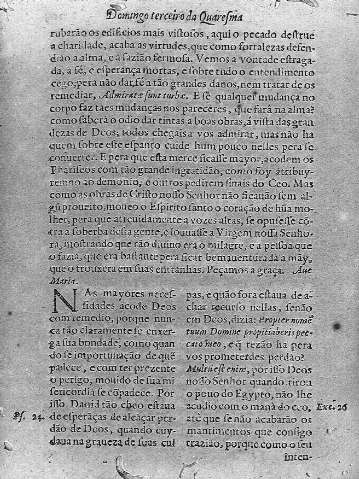 Domingo terceiro da Quaresma
rubarão os edificios mais vistosos, aqui o pecado destrue
a charidade, acaba as virtudes, que como fortalezas defen-
dião a alma, e a fazião fermosa. Vemos a vontade estraga-
da, a fé, e esperança mortas, e sobre tudo o entendimento
cego, pera não dar fé a tão grandes danos, nem tratar de os
remediar, Admirate sunt turbe. E se qualquer mudança no
corpo faz taes mudanças nos pareceres, que fará na alma?
como saberá o odio dar tintas a boas obras, á vista das gran
dezas de Deos, todos chegais a vos admirar, mas não ha
quem sobre este espanto cuide hum pouco nelles pera se
converter. E pera que esta merce ficasse mayor, acodem os
Phariseos com tão grande ingratidão, como foy attribuy-
rem no ao demonio, e outros pedirem sinais do Ceo. Mas
como as obras de Christo nosso Senhor não ficauão sem al-
gũ proueito, moueo o Espirito santo o coração de hũa mo-
lher, pera que atreuidamente a vozes altas, se opusesse cõ-
tra a soberba desta gente, e louuasse a Virgem nossa Senho-
ra, mostrando que tão diuino era o milagre, e a pessoa que
o fazia, que era bastante pera ficar bemauenturada a mãy,
que o trouxera em suas entranhas. Peçamos a graça. Aue
Maria.
NAs mayores neces-
sidades acode Deos
com remedio, porque nun-
ca tão claramente se enxer-
ga sua bondade, como quan
do se importunação de quẽ
padece, e com ter presente
o perigo, mouido de sua mi
sericordia se cõpadece. Por
isso Dauid tão cheo estaua
Ps. 24. de esperãças de alcançar per-
dão de Deos, quando cuy-
daua na graueza de suas cul
pas, e quão fora estaua de a-
char socorro nellas, senão
em Deos, dizia: Propter nomẽ
tuum Domine propitiaberis pec-
cato meo, e q̃ rezão ha pera
vos prometerdes perdão?
Multum est enim, por isso Deos
nosso Senhor quando tirou
o pouo do Egypto, não lhe
acudio com o maná do ceo, Exo. 16
até que se não acabarão os
mantimentos que consigo
trazião, porque como o seu
inten-